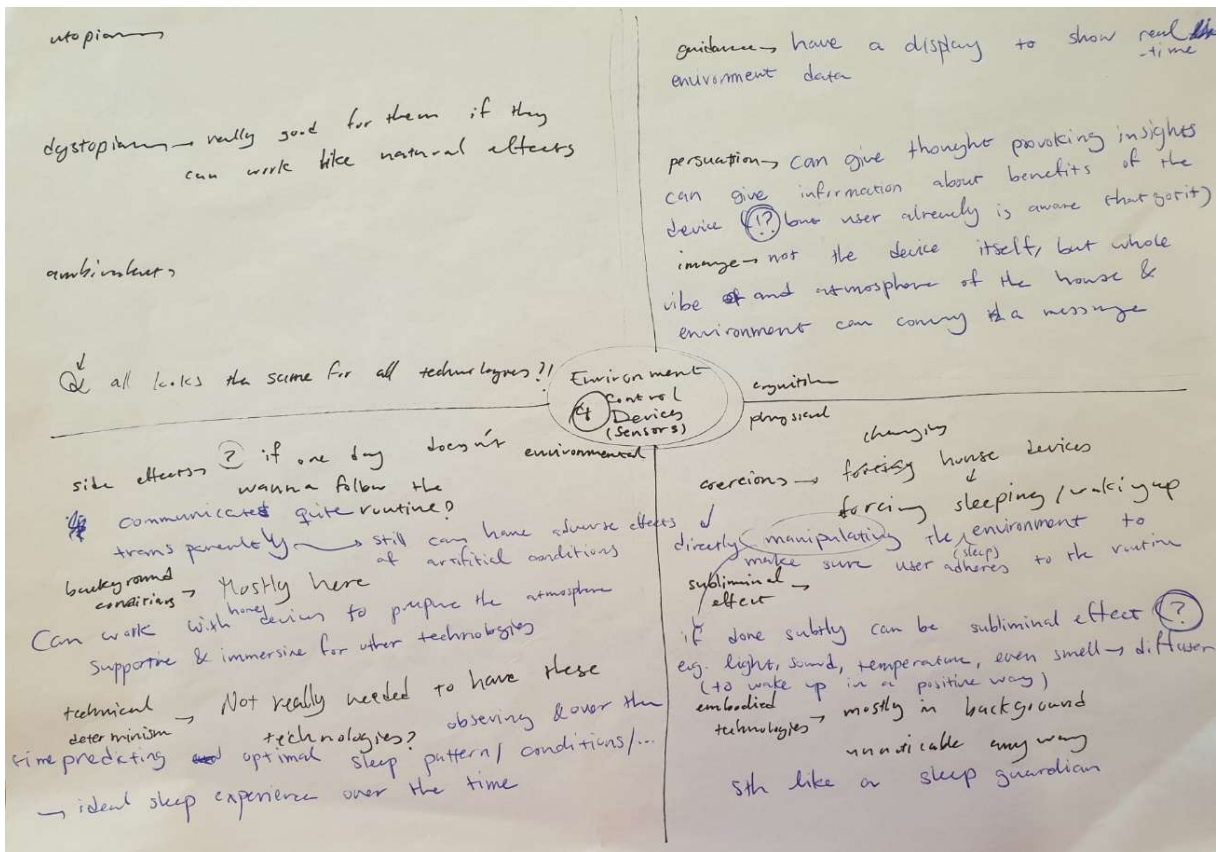 utopian→
dystopian→ really good for them if they
can work like natural effects
ambivalent→
Q↓ all looks the same for all technologies?!
guidance→ have a display to show real
-time
enviroment data
persuation→ can give thought provoking insights
can give information about benefits of the
device (!? user already is aware that got it)
image→ not the device itself, but whole
vibe and atmosphere of the house &
environment can convey a message
Environment
Control
4 Devices
(sensors)
cognition
physical
environmental
side effects→ ? if one day doesn't
wanna follow the
communicated quite routine?
transparently → still can have adverse effects
of artifitial conditions
background
conditions → Mostly here
Can work with home devices to prepare the atmosphere
Supportive & immersive for other technologies
technical
determinism → Not really needed to have these
technologies? observing & over the
time predicting optimal sleep pattern/ conditions/...
→ ideal sleep experience over the time
changing
coercions → house devices
↓
forcing sleeping/waking up
directly manipulating the environment to
(sleep)
make sure user adheres to the routine
subliminal
effect →
if done subtly can be subliminal effect ?
e.g. light, sound, temperature, even smell → diffuser
(to wake up in a positive way)
embodied
technologies → mostly in background
unnoticable anyway
sth like a sleep guardian